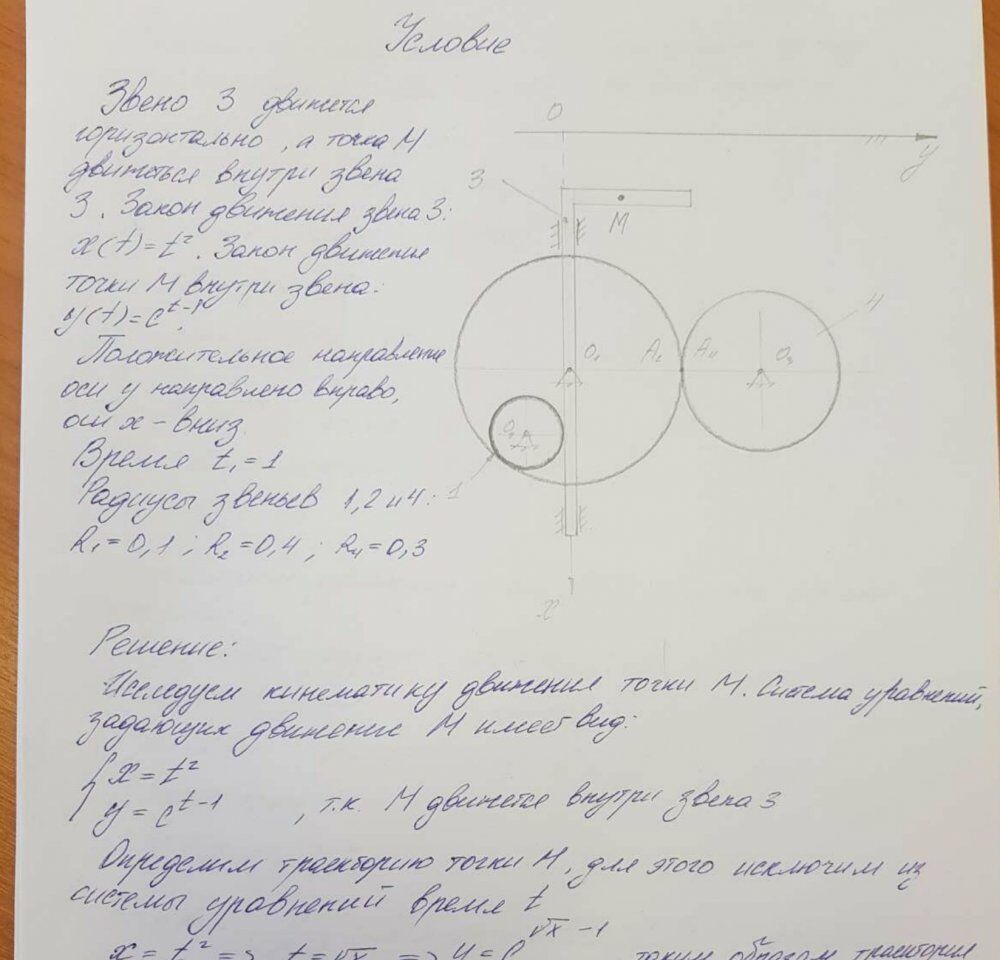 Условие
Звено 3 движется
горизонтально, а точка М
двигаться внутри звена
3. Закон движения звена 3:
x(t)=t². Закон движения
точки М внутри звена:
y(t)=e^{t-1}.
Положительное направление
оси y направлено вправо,
оси x – вниз.
Время t₁=1
Радиусы звеньев 1,2 и 4:
R₁=0,1; R₂=0,4; R₄=0,3
O
y
3
M
4
O₂
A₂
A₄
O₄
O₁
1
x
Решение:
Исследуем кинематику движения точки М. Система уравнений,
задающих движение М имеет вид:
x=t²
y=e^{t-1}, т.к. М движется внутри звена 3
Определим траекторию точки М, для этого исключим из
системы уравнений время t
x=t² => t=√x => y=e^{√x-1} таким образом траектория